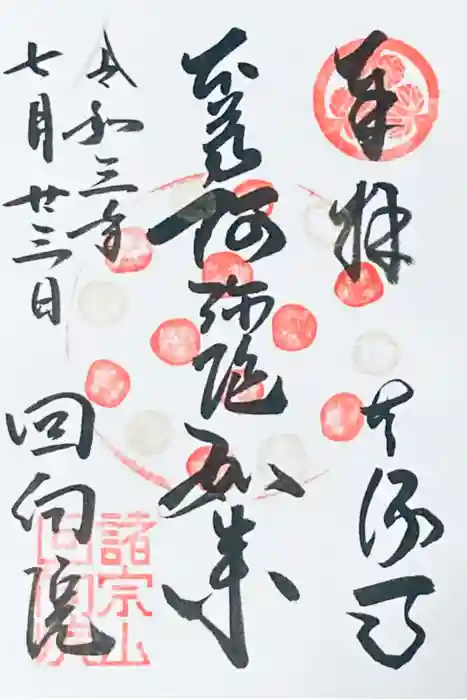 奉拝
本尊阿弥陀如来
令和三年
七月廿三日
回向院
諸宗山
回向院